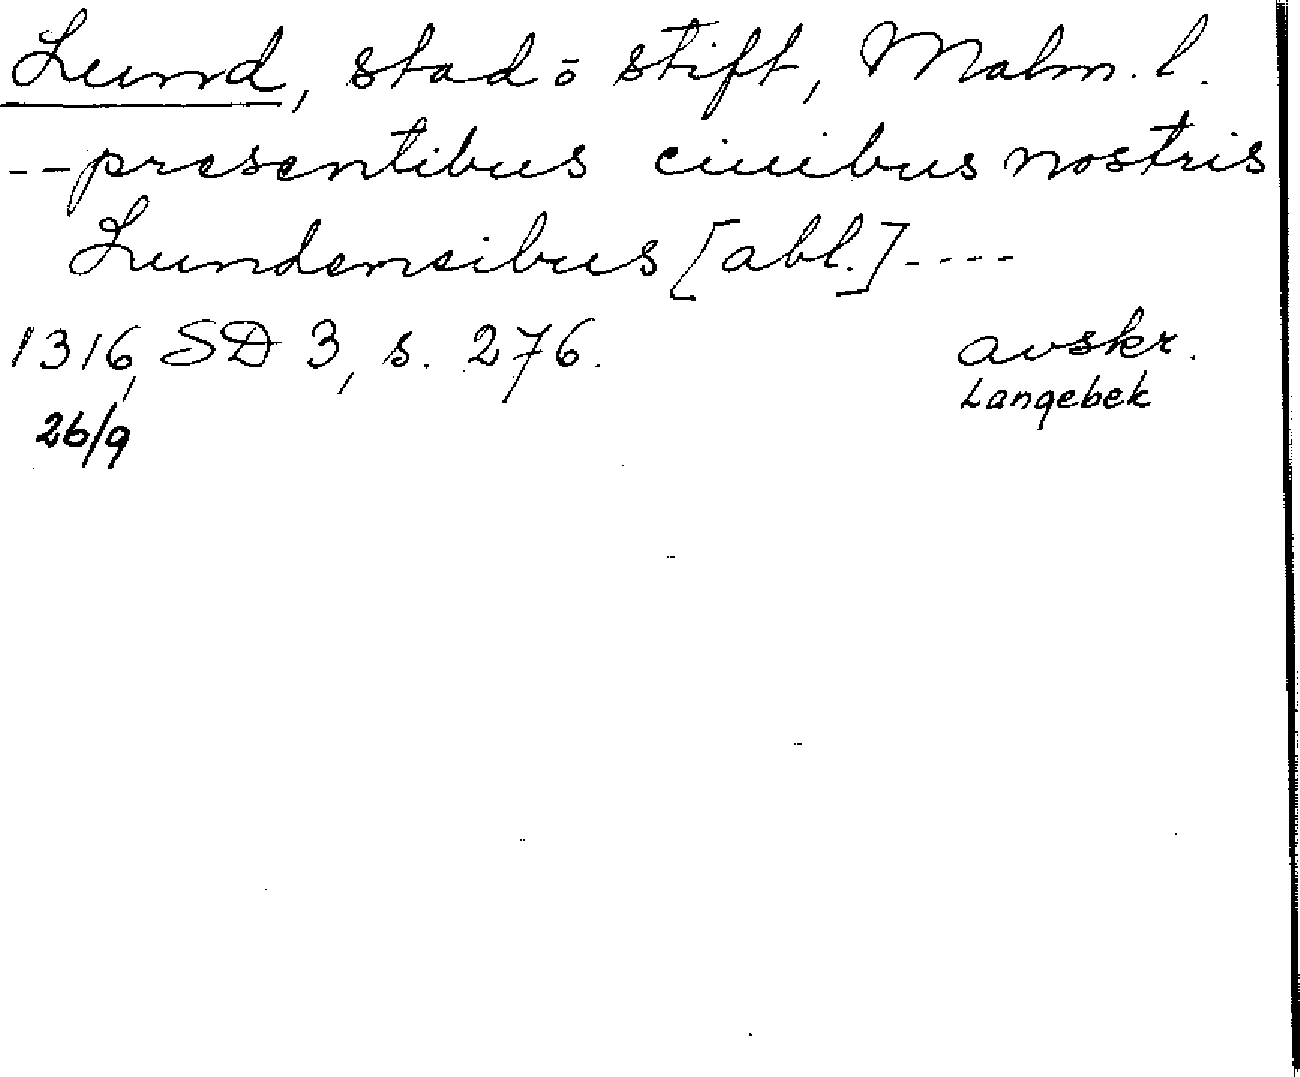 Lund, stad o stift, Malm. l.
--presentibus ciuibus nostris
Lundensibus [abl.]----
1316, SD 3, s. 276. avskr.
26/9 Langebek